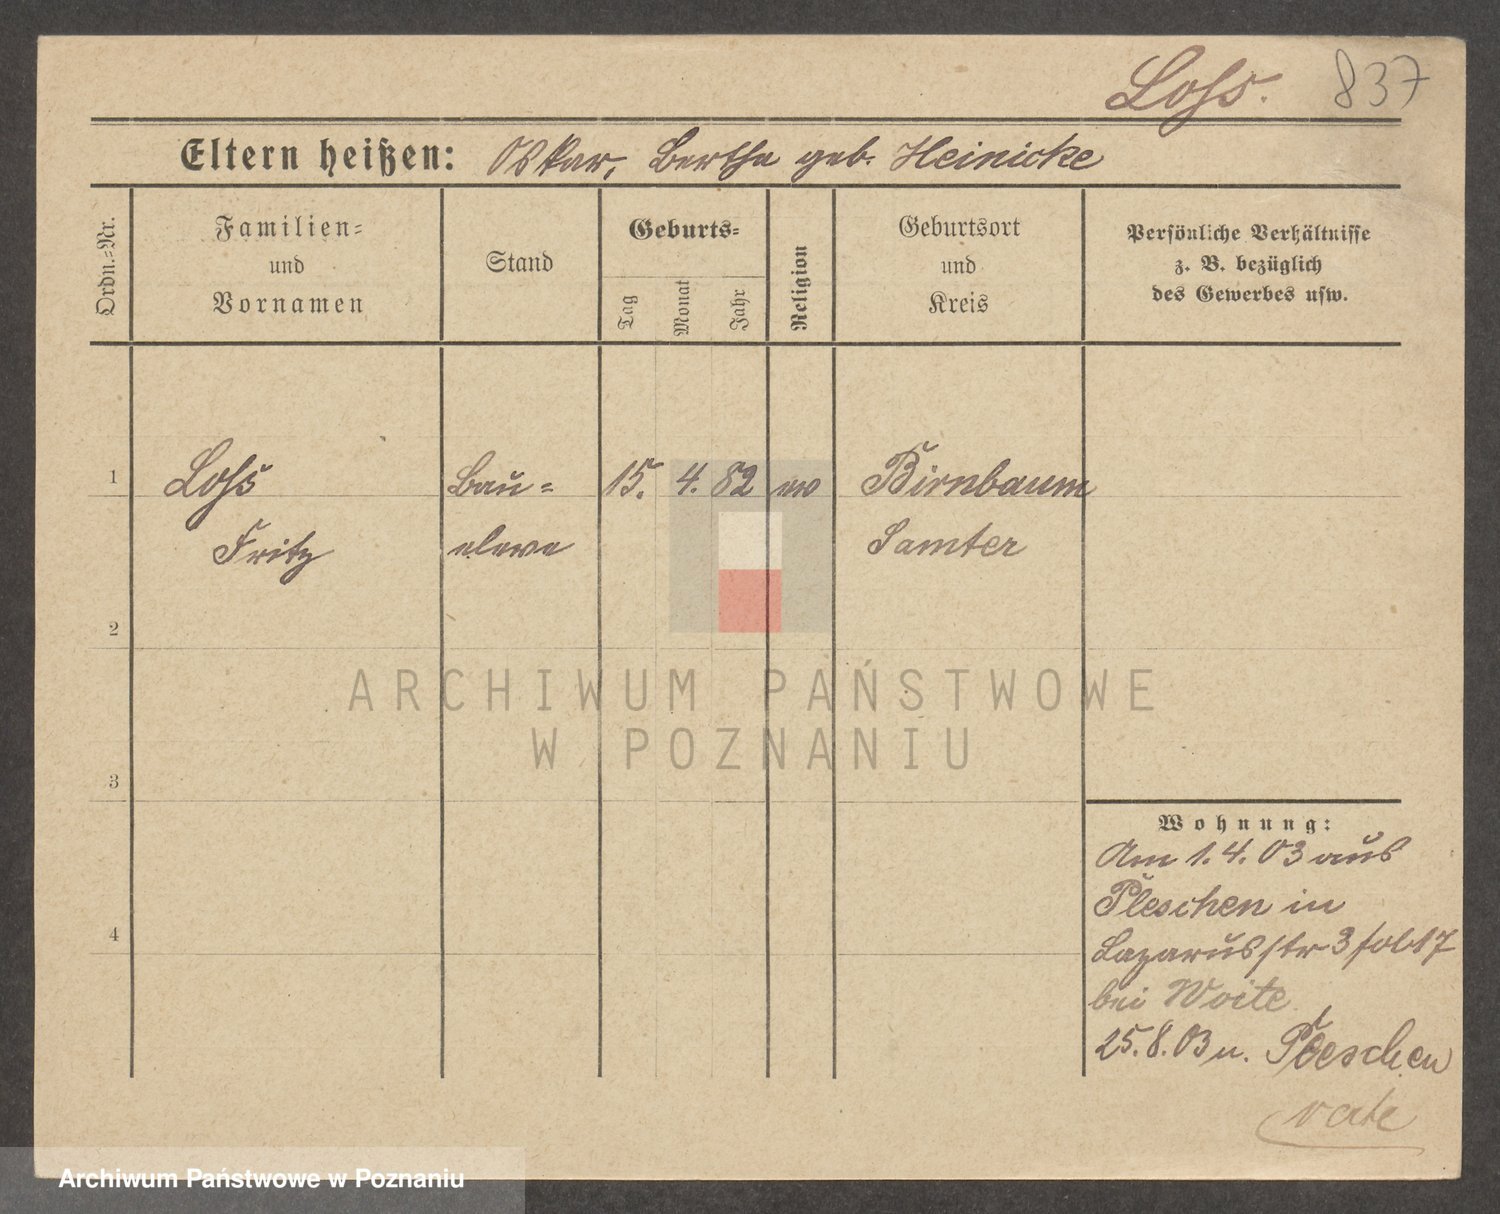 Lohs. 837
Eltern heißen: Oskar, Bertha geb. Heinicke
Ordn.-Nr.
Familien-
und
Vornamen
Stand
Geburts-
Tag
Monat
Jahr
Religion
Geburtsort
und
Kreis
Persönliche Verhältnisse
z. B. bezüglich
des Gewerbes usw.
1 Lohs Bau- 15. 4. 82 ev Birnbaum
Fritz eleve Samter
2
ARCHIWUM PAŃSTWOWE
W POZNANIU
3
Wohnung:
Am 1.4.03 aus
Pleschen in
4
Lazarusstr 3 fol 17
bei Woite
25.8.03 n. Pleschen
Archiwum Państwowe w Poznaniu